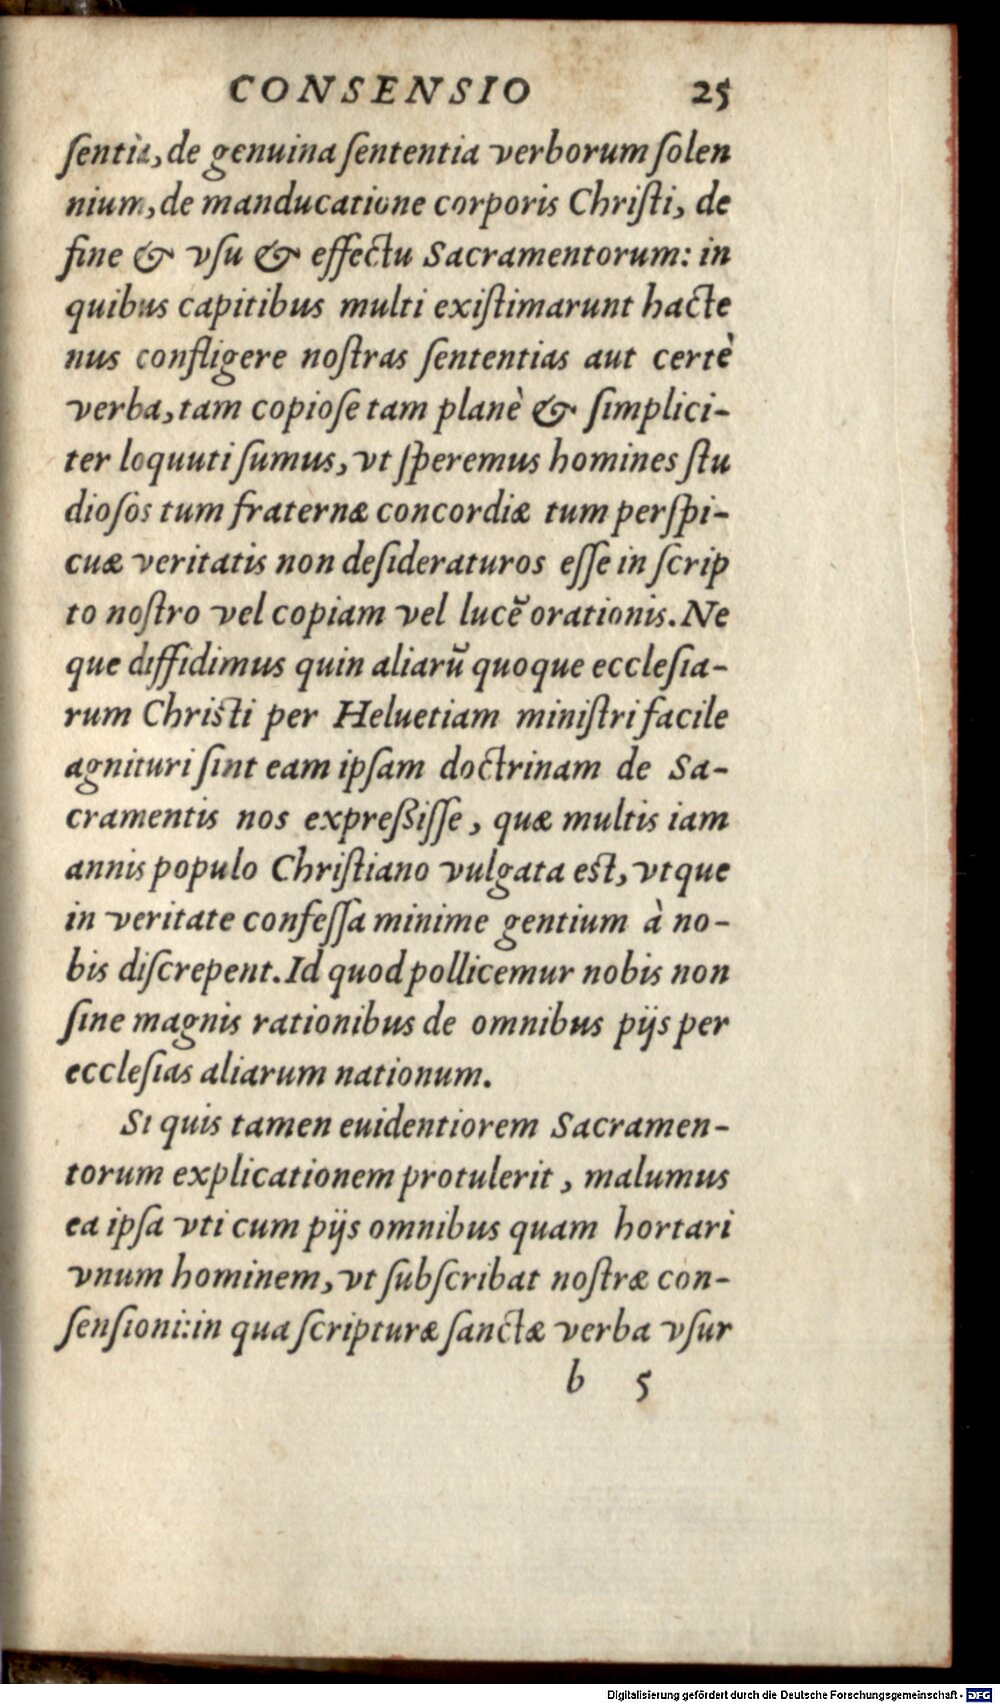 CONSENSIO 25
sentia, de genuina sententia verborum solen
nium, de manducatione corporis Christi, de
fine & vsu & effectu Sacramentorum: in
quibus capitibus multi existimarunt hacte
nus confligere nostras sententias aut certè
verba, tam copiose tam planè & simplici-
ter loquuti sumus, vt speremus homines stu
diosos tum fraternæ concordiæ tum perspi-
cuæ veritatis non desideraturos esse in scrip
to nostro vel copiam vel lucē orationis. Ne
que diffidimus quin aliarū quoque ecclesia-
rum Christi per Heluetiam ministri facile
agnituri sint eam ipsam doctrinam de Sa-
cramentis nos expreßisse, quæ multis iam
annis populo Christiano vulgata est, vtque
in veritate confessa minime gentium à no-
bis discrepent. Id quod pollicemur nobis non
sine magnis rationibus de omnibus pijs per
ecclesias aliarum nationum.
Si quis tamen euidentiorem Sacramen-
torum explicationem protulerit, malumus
ea ipsa vti cum pijs omnibus quam hortari
vnum hominem, vt subscribat nostræ con-
sensioni: in qua scripturæ sanctæ verba vsur
b 5
Digitalisierung gefördert durch die Deutsche Forschungsgemeinschaft - DFG